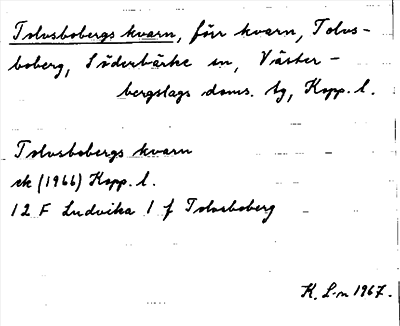 Tolvsbobergs kvarn, förr kvarn, Tolvs-
boberg, Söderbärke sn, Väster-
bergslags doms. tg, Kopp. l.
Tolvsbobergs kvarn
ek (1966) Kopp. l.
12 F Ludvika 1 f Tolvsboberg
K. L-n 1967.